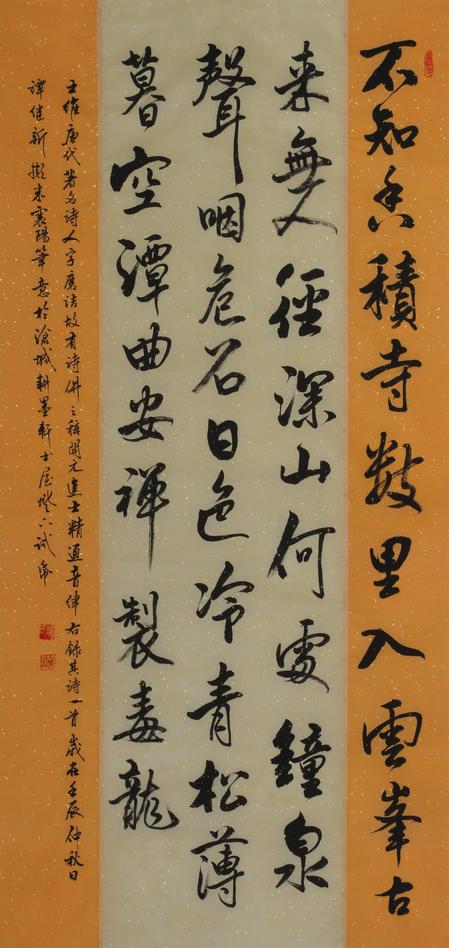 不知香積寺數里入雲峯古
来無人徑深山何處鐘泉
聲咽危石日色冷青松薄
暮空潭曲安禪製毒龍
王維唐代著名诗人字摩诘故有詩佛之稱開元進士精通音律右録其诗一首歲在壬辰仲秋日
譚佳新擬米襄陽筆意於滄城耕墨軒書屋燈下试帋